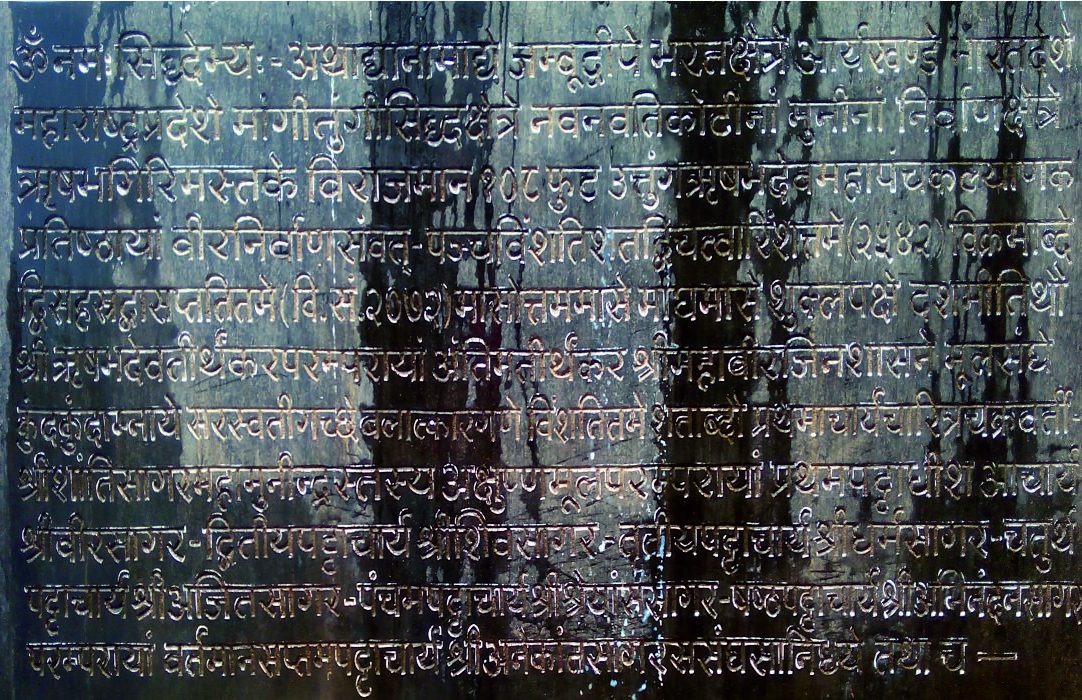 ॐ नमः सिद्धेभ्यः - अथाद्यानामाद्ये जम्बूद्वीपे भरतक्षेत्रे आर्यखण्डे भारतदेशे
महाराष्ट्रप्रदेशे मांगीतुंगीसिद्धक्षेत्रे नवनवतिकोटीनां मुनीनां निर्वाणक्षेत्रे
ऋषभगिरिमस्तके विराजमान १०८ फुट उत्तुंग ऋषभदेवमहापंचकल्याणक
प्रतिष्ठायां वीरनिर्वाणसंवत्-पञ्चविंशतिशतद्विचत्वारिंशत्तमे (२५४२) विक्रमाब्दे
द्विसहस्रद्वासप्ततितमे (वि.सं.२०७२) मासोत्तममासे माघमासे शुक्लपक्षे दशमीतिथौ
श्री ऋषभदेवतीर्थंकरपरम्परायां अंतिमतीर्थंकर श्रीमहावीरजिनशासने मूलसंघे
कुंदकुंदाम्नाये सरस्वतीगच्छे बलात्कारगणे विंशतितमे शताब्दौ प्रथमाचार्यचारित्रचक्रवर्ती-
श्रीशांतिसागरमहामुनीन्द्रस्तस्य अक्षुण्णमूलपरम्परायां प्रथमपट्टाधीश आचार्य
श्रीवीरसागर-द्वितीयपट्टाचार्य श्रीशिवसागर-तृतीयपट्टाचार्य श्रीधर्मसागर-चतुर्थ
पट्टाचार्य श्रीअजितसागर-पंचमपट्टाचार्य श्रीश्रेयांससागर-षष्ठपट्टाचार्य श्रीअभिनंदनसागर
परम्परायां वर्तमानसप्तमपट्टाचार्य श्रीअनेकांतसागरससंघसानिध्ये तथा च ।